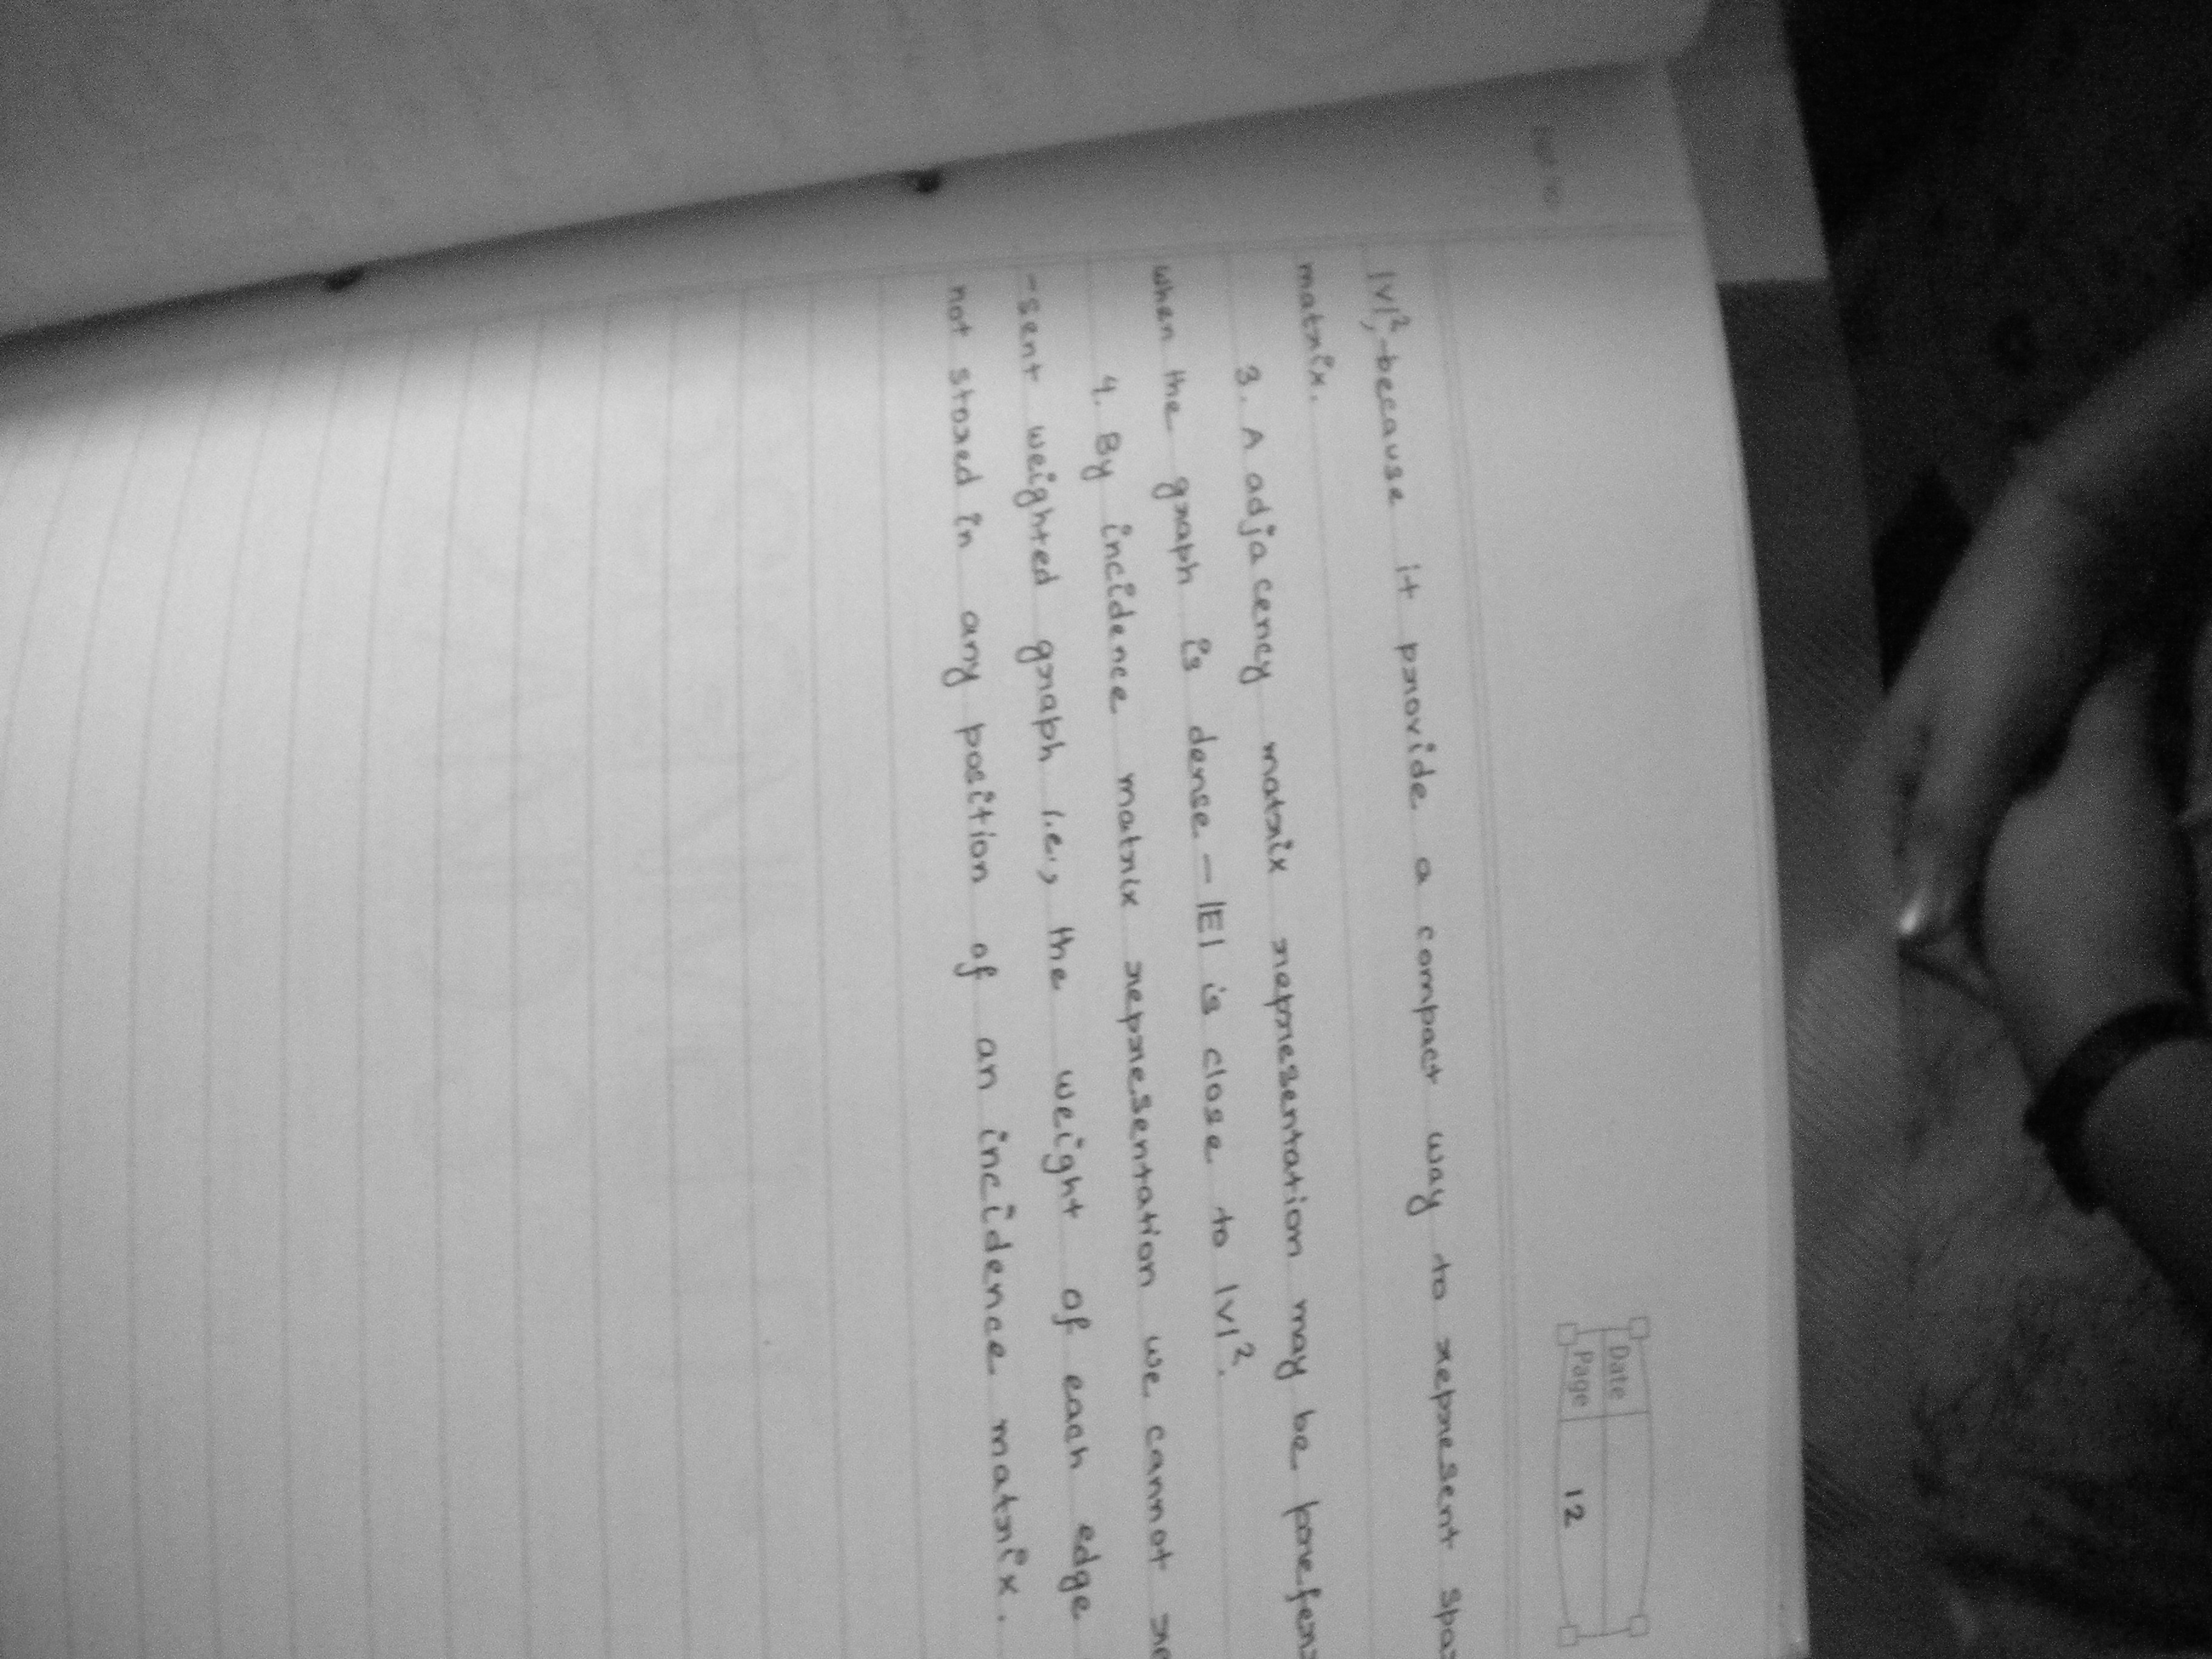 Date
Page 12
|V|², because it provide a compact way to represent
matrix.
3. A adjacency matrix representation may be
when the graph is dense - |E| is close to |V|².
4. By incidence matrix representation we cannot
-sent weighted graph i.e., the weight of each edge
not stored in any position of an incidence matrix.